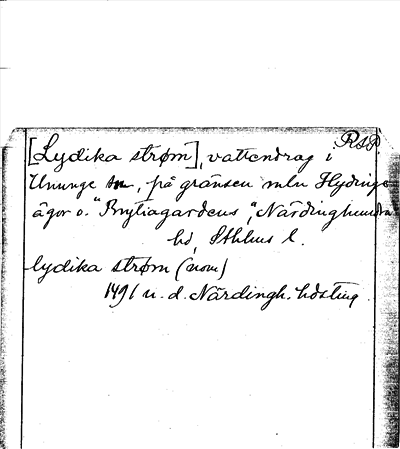 RAP.
[Lydika strøm], vattendrag i
Ununge sn, på gränsen mln Hydinge
ägor o. "Brytiagardeus", Närdinghundra
hd, Sthlms l.
lydika strøm (nom)
1491 u. d. Närdingh. hdsting